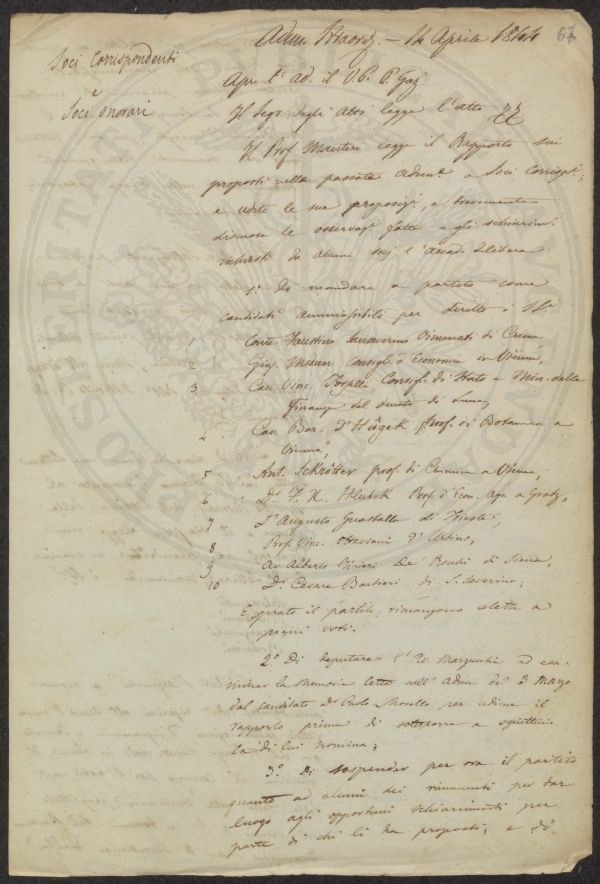 67
Adun. Straord. — 14 Aprile 1844
Soci Corrispondenti
e
Soci Onorari
Aprest. ad. il V. P. P. Gaz.
Il Segr. degli Atti legge l'atto
Il Prof. legge il Rapporto sui
proposti nella passata adunz. a Soci Corrispti,
e udite le sue proposizi., e brevemente
discusse le osservazi. fatte e gli schiarim.
richiesti da alcuni socj l'Accad. delibera
1.° Di mandare a partito come
candidati ammissibile per diritto i SS.i
1 Conte Faustino Sanseverino Vimercati di Crema
2 Gius. Consigl. d'Economia in Vienna,
3 Cav. Vinc. Consigl. di Stato e Min. delle
Finanze del Ducato di Lucca,
4 Cav. Bar. D'Hügel Prof. di Botanica a
Vienna,
5 Ant. Schrötter prof. di Chimica a Vienna,
6 Dr. F. X. Hlubek Prof. d'Econ. Agr. a Gratz,
7 D. Augusto Guastalla di Trieste,
8 Prof. Vinc. Ottaviani d'Urbino,
9 Av. Alberto Rinieri De' Rocchi di Siena,
10 Dr. Cesare Barbieri di S. Severino;
E girato il partito, rimangono eletti a
pieni voti.
2.° Di deputare l' Marzucchi ad esa-
minar la Memoria letta nell'Adun. de' 3 Marzo
dal candidato Dr. Carlo Morelli per udirne il
rapporto prima di sottoporre a squittinio
la di lui nomina;
3.° Di sospender per ora il partito
quanto ad alcuni dei rimanenti per dar
luogo agli opportuni schiarimenti per
parte di chi li ha proposti, e di